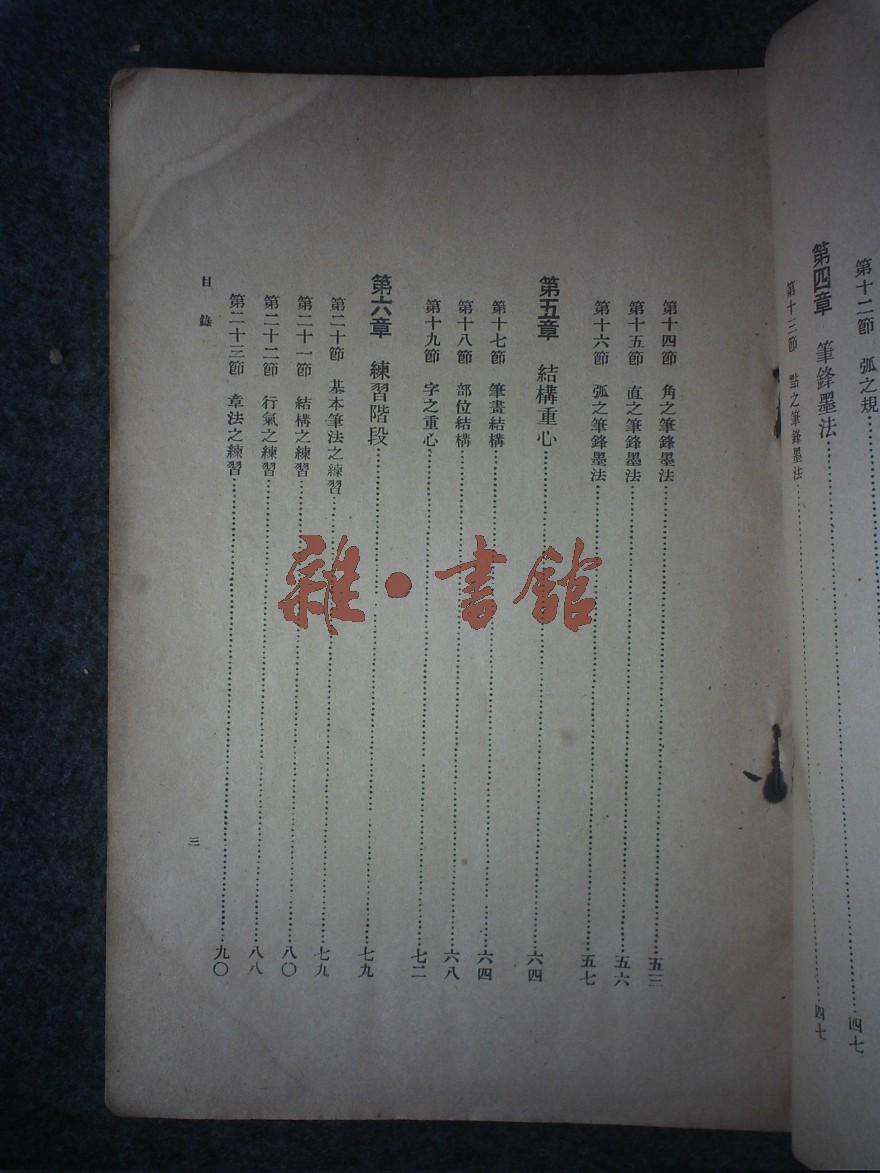 第十二節 弧之規……
第四章 筆鋒墨法……四七
第十三節 點之筆鋒墨法……四七
第十四節 角之筆鋒墨法……五三
第十五節 直之筆鋒墨法……五六
第十六節 弧之筆鋒墨法……五七
第五章 結構重心……六四
第十七節 筆畫結構……六四
第十八節 部位結構……六八
第十九節 字之重心……七二
第六章 練習階段……七九
第二十節 基本筆法之練習……七九
第二十一節 結構之練習……八〇
第二十二節 行氣之練習……八八
第二十三節 章法之練習……九〇
目錄 三
雜·書館